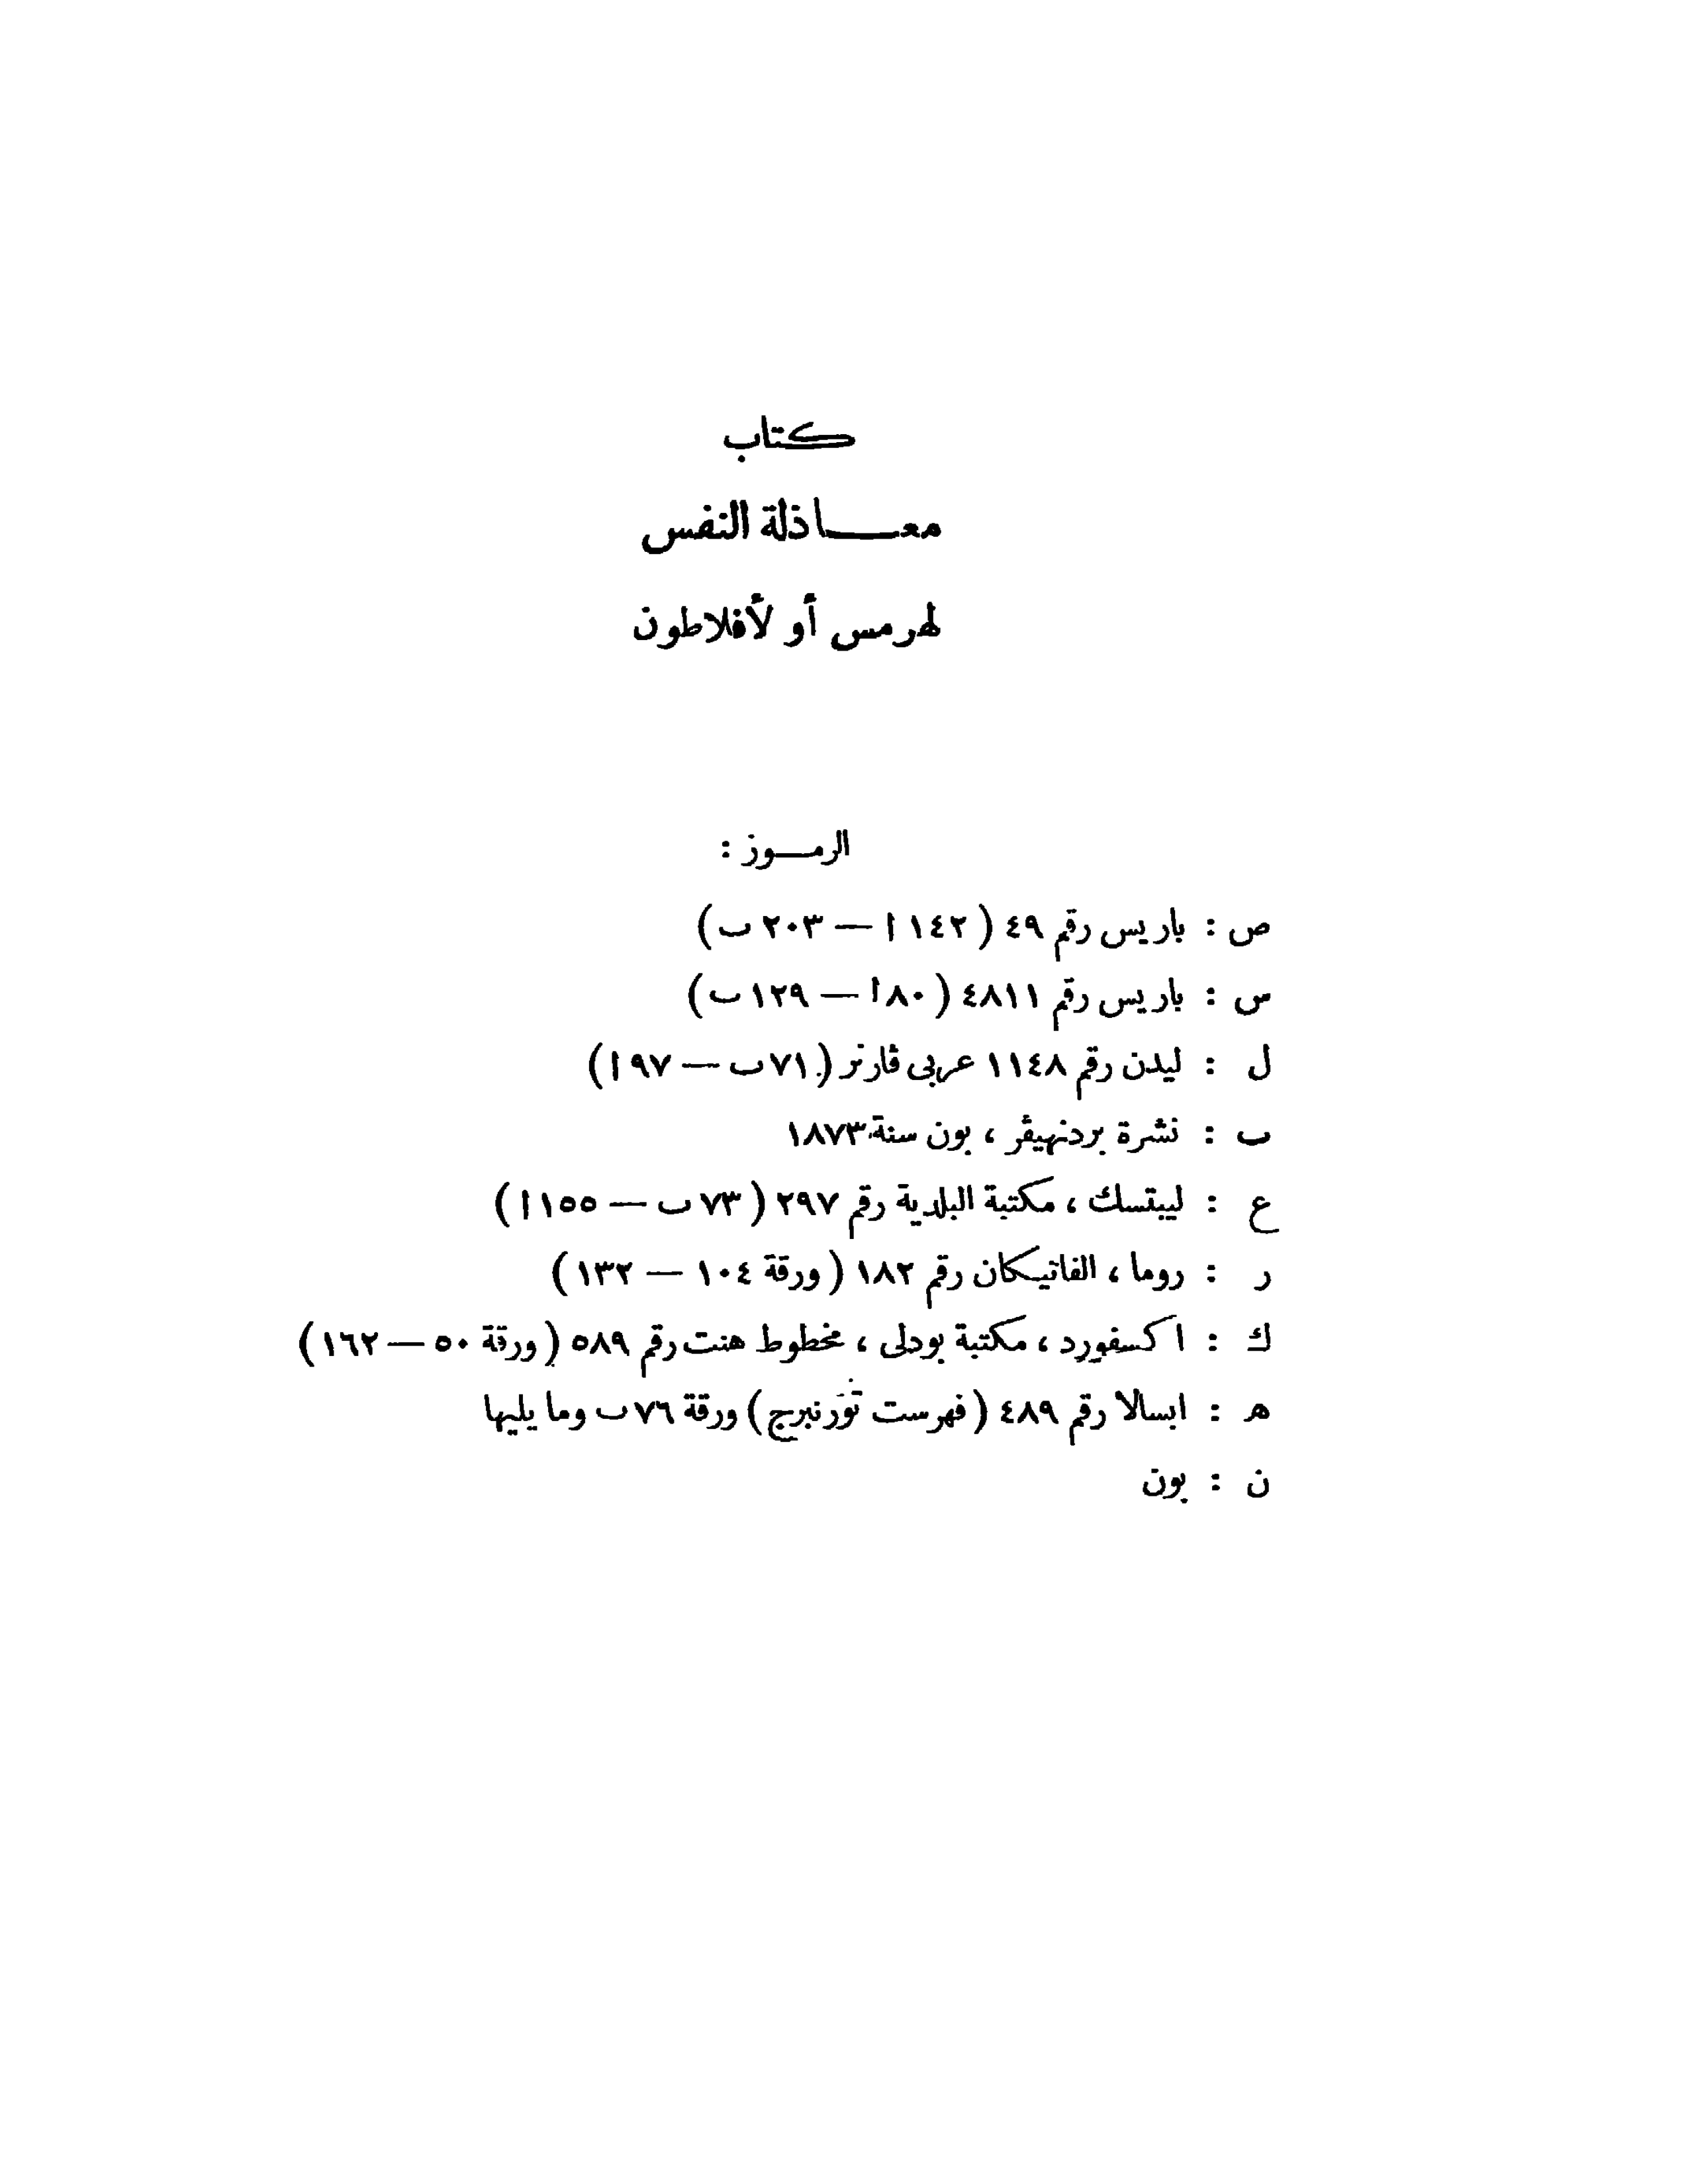 كتاب
معاذلة النفس
لهرمس أو لأفلاطون
الرموز :
ص : باريس رقم ٤٩ ( ١٤٢ ا — ٢٠٣ ب )
س : باريس رقم ٤٨١١ ( ٨٠ا — ١٢٩ ب )
ل : ليدن رقم ١١٤٨ عربى ڤارنر ( ٧١ب — ٩٧ ا )
ب : نشرة بردنهيڤر ، بون سنة ١٨٧٣
ع : ليبتسك ، مكتبة البلدية رقم ٢٩٧ ( ٧٣ ب — ١٥٥ ا )
ر : روما ، الفاتيكان رقم ١٨٢ ( ورقة ١٠٤ — ١٣٢ )
ك : اكسفورد ، مكتبة بودلى ، مخطوط هنت رقم ٥٨٩ ( ورقة ٥٠ — ١٦٢ )
ه : ابسالا رقم ٤٨٩ ( فهرست تورنبرج ) ورقة ٧٦ ب وما يليها
ن : بون